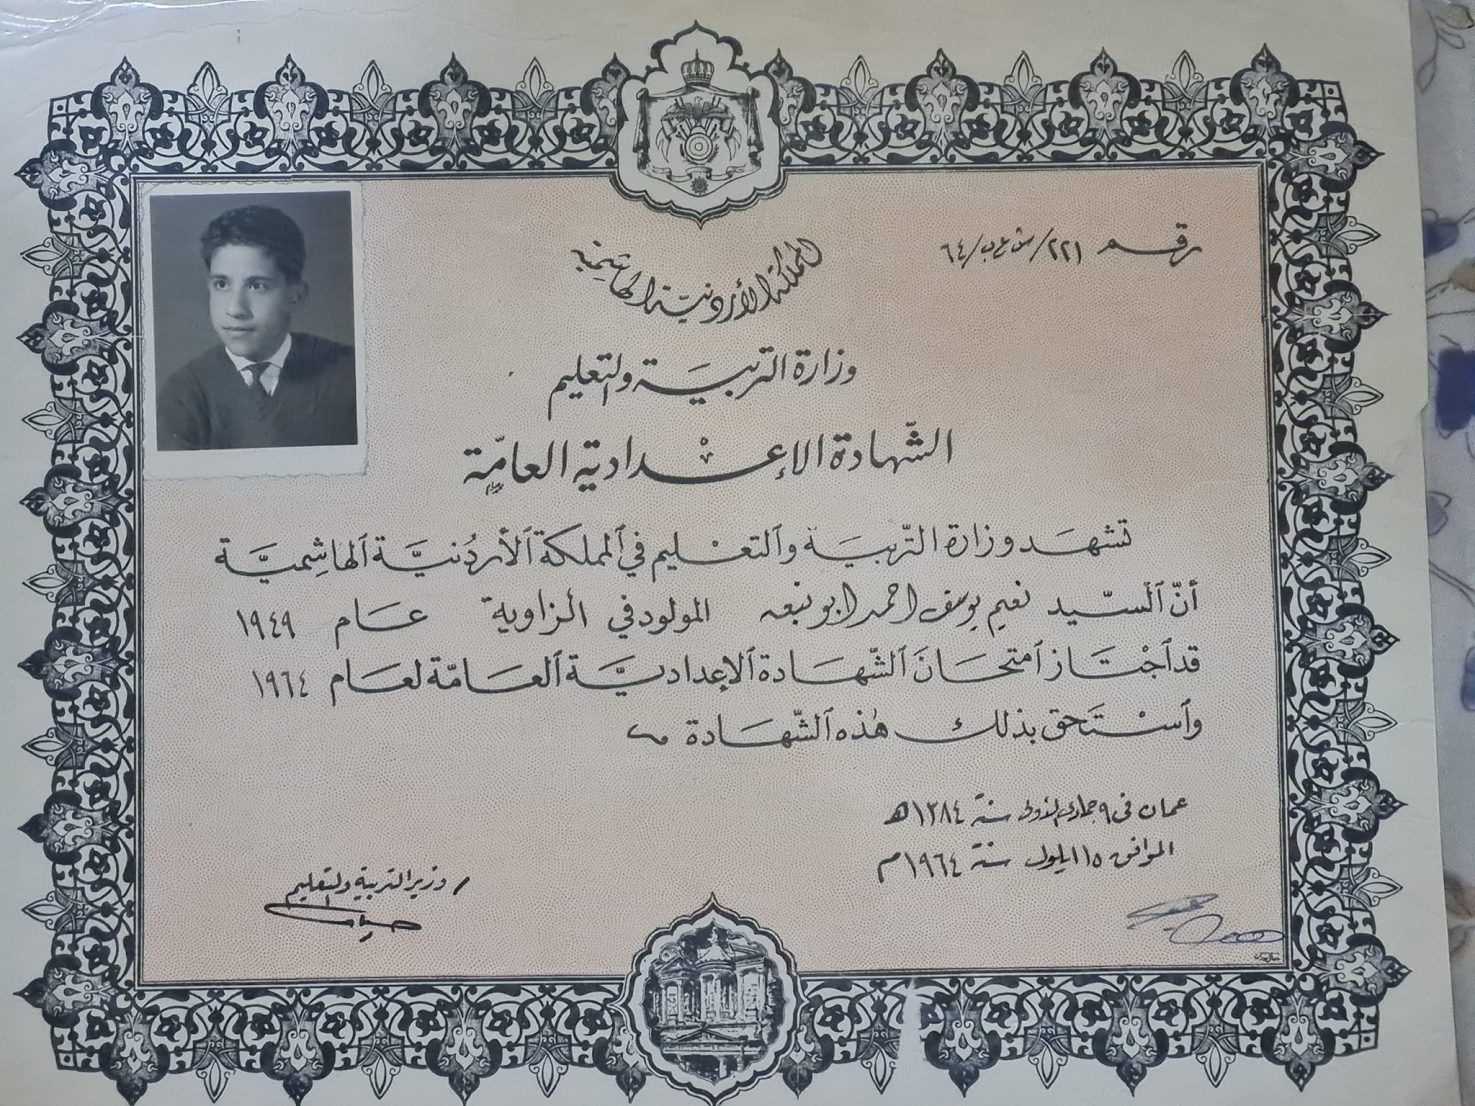 رقم ٢٢١/ش ع ب/٦٤
المملكة الأردنيّة الهاشميّة
وزارة التربيـة والتعليم
الشّهادة الإعْداديّة العامّة
تشهد وزارة التّربيـة وٱلتعـْليم في ٱلمملكة ٱلأردُنيَّـة ٱلهاشِميَّـة
أنّ ٱلسّيد نعيم يوسف احمد ابو نبعه المولود في الزاوية عـام ١٩٤٩
قد ٱجْتـاز ٱمتحـانَ ٱلشّهـادة ٱلإعداديَّـة ٱلعـامّة لعـام ١٩٦٤
وٱسْتَحق بذلك هٰذه ٱلشّهـادة
عمان في ٩ جمادى الأولى سنة ١٣٨٤ هـ
الموافق ١٥ ايلول سنة ١٩٦٤ م
/ وزير التربية والتعليم